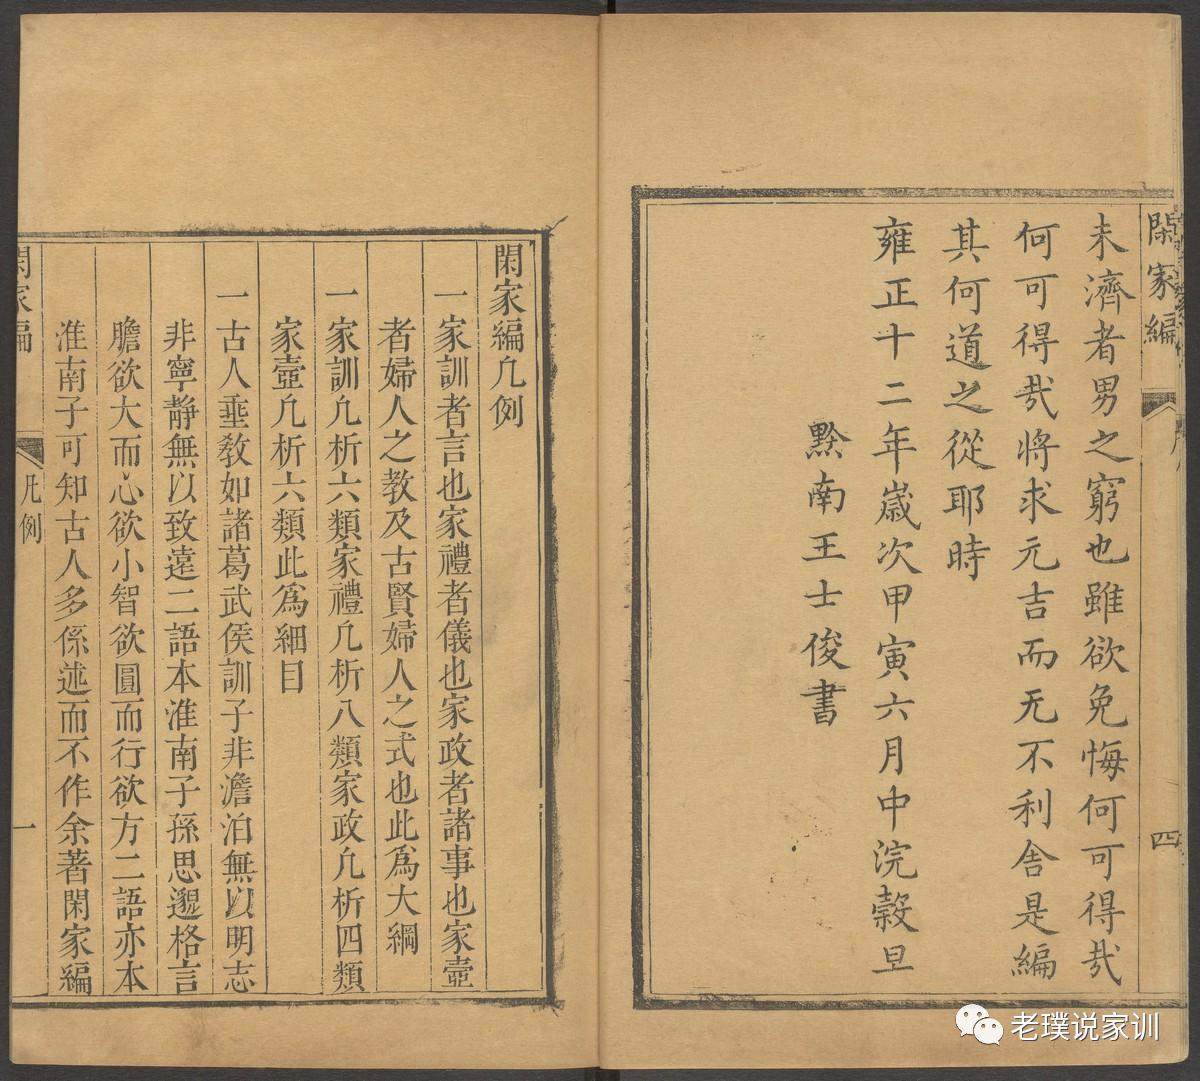 閑家編
四
未濟者男之窮也雖欲免悔何可得哉
何可得哉將求元吉而无不利舍是編
其何道之從耶時
雍正十二年歲次甲寅六月中浣穀旦
黔南王士俊書
閑家編凡例
一家訓者言也家禮者儀也家政者諸事也家壼
者婦人之教及古賢婦人之式也此為大綱
一家訓凡析六類家禮凡析八類家政凡析四類
家壼凡析六類此為細目
一古人垂教如諸葛武侯訓子非澹泊無以明志
非寧靜無以致遠二語本淮南子孫思邈格言
膽欲大而心欲小智欲圓而行欲方二語亦本
淮南子可知古人多係述而不作余著閑家編
閑家編
凡例
一
老璞说家训